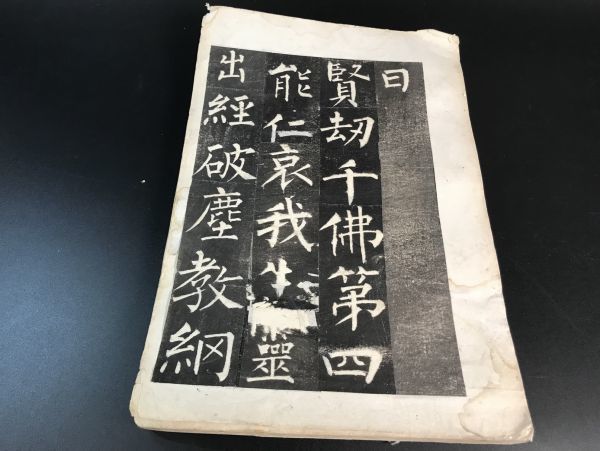 曰
賢劫千佛第四
能仁哀我生靈
出經破塵教網